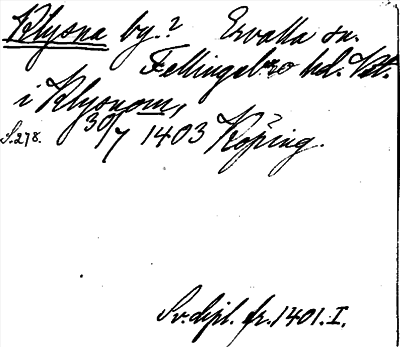 Klysna by.? Ervalla sn.
Fellingsbro hd. Vstm.
i Klysnom,
S.278. 30/7 1403 Köping.
Sv. dipl. fr. 1401. I.